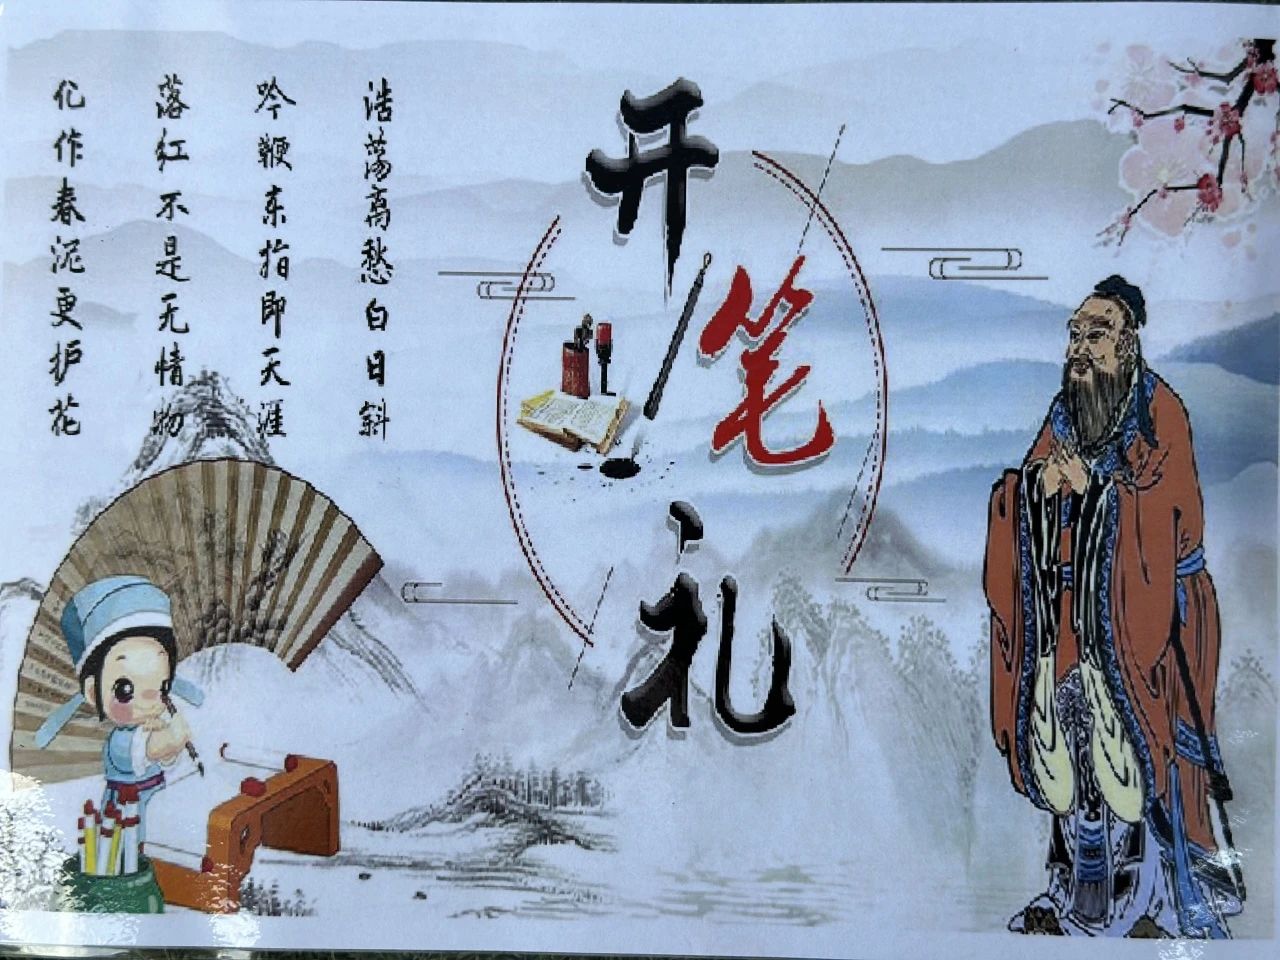 开笔礼
浩荡离愁白日斜
吟鞭东指即天涯
落红不是无情物
化作春泥更护花